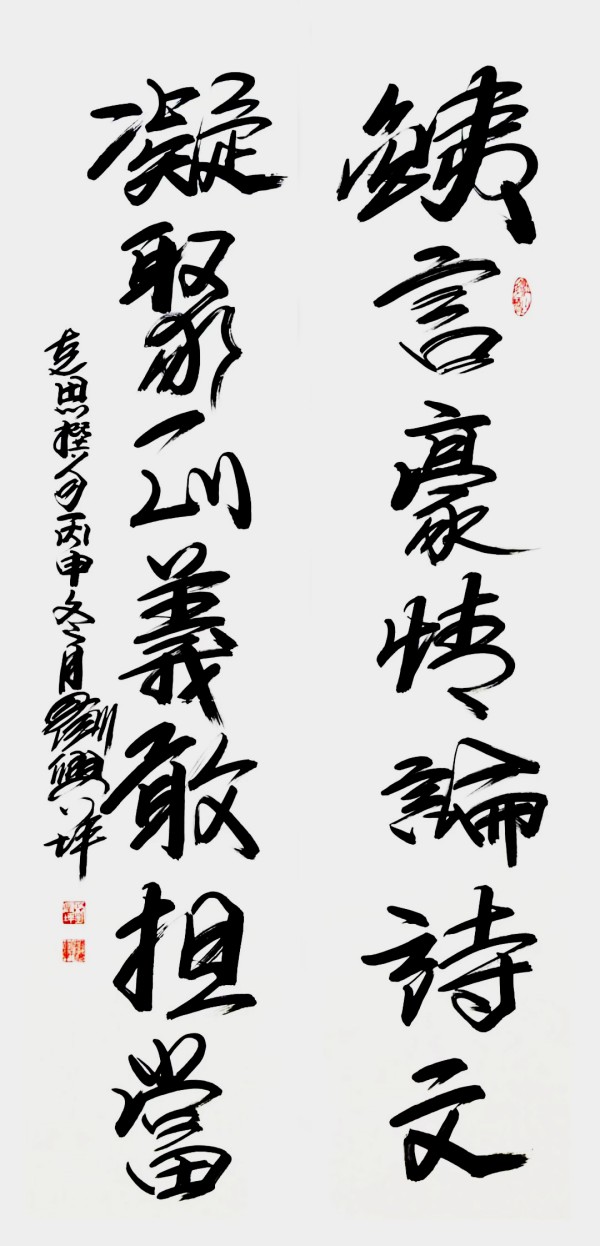 銕言豪情論詩文
凝聚義敢担當
思撰丙申冬月劉興坪